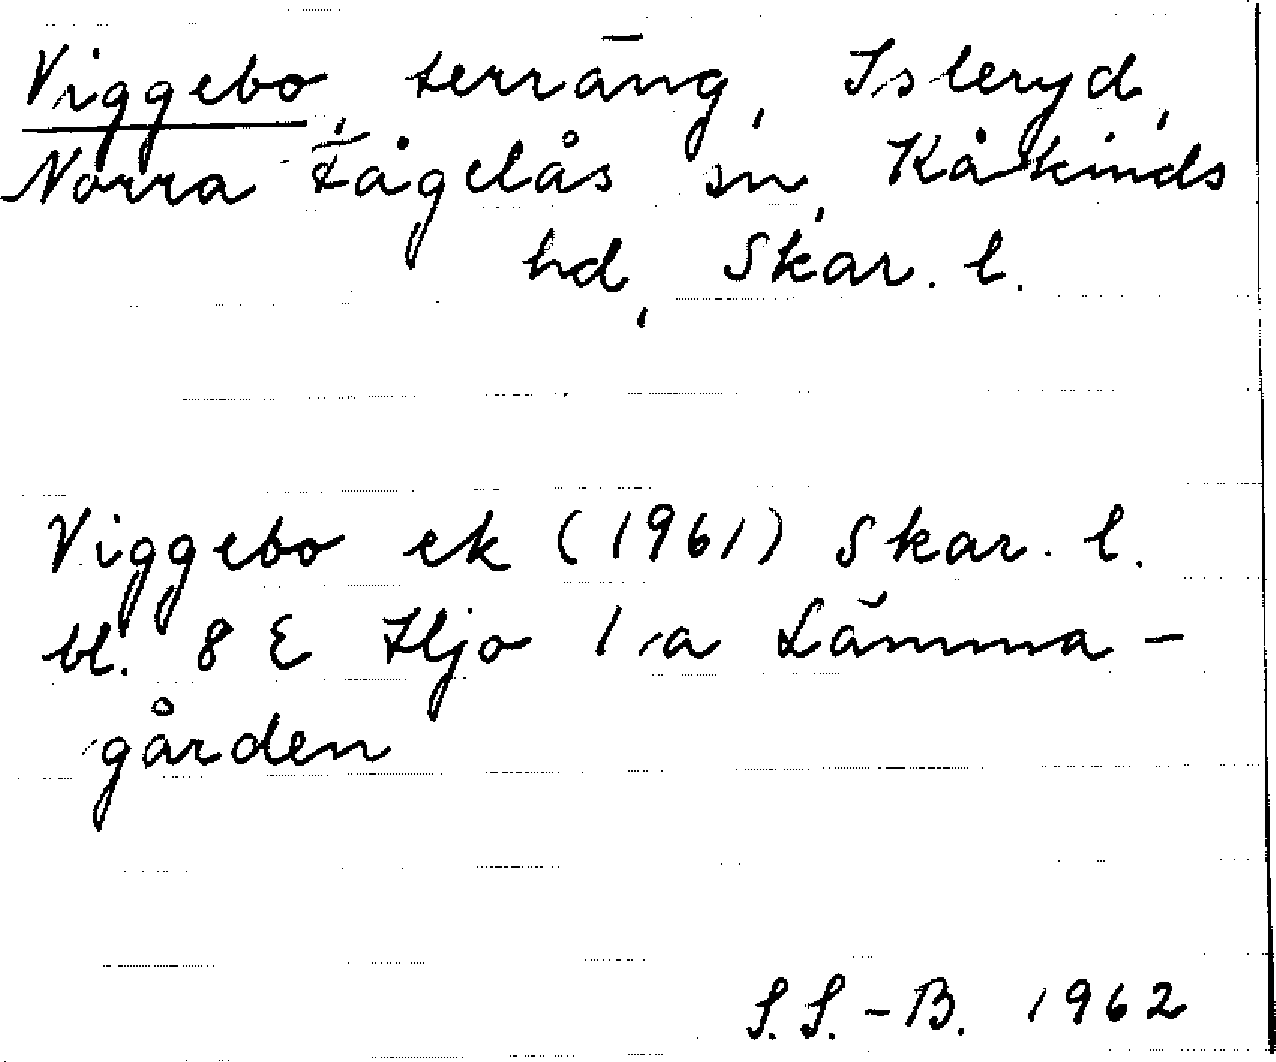 Viggebo, terräng, Isleryd,
Norra Fågelås sn, Kåkinds
hd, Skar. l.
Viggebo ek (1961) Skar. l.
bl. 8 E Hjo 1 a Lämma-
gården
S.S.-B. 1962